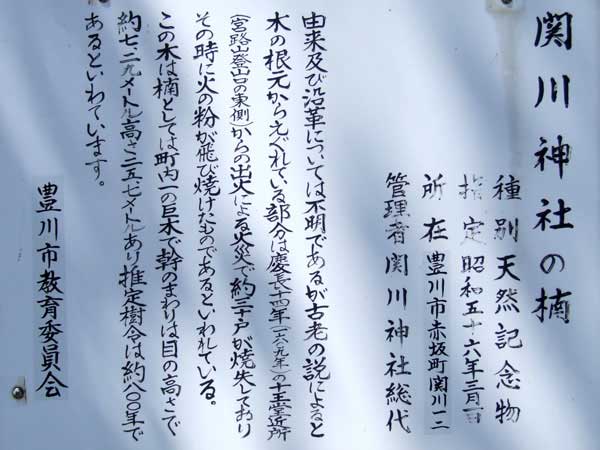 関川神社の楠
種別天然記念物
指定昭和五十六年三月一日
所在豊川市赤坂町関川一二
管理者関川神社総代
由来及び沿革については不明であるが古老の説によると
木の根元からえぐれている部分は慶長十四年(一六〇九年)の十王堂近所
(宮路山登山口の東側)からの出火による火災で約三十戸が焼失しており
その時に火の粉が飛び焼けたものであるといわれている。
この木は楠としては町内一の巨木で幹のまわりは目の高さで
約七・二九メートル高さ二五・七メートルあり推定樹令は約八〇〇年で
あるといわれています。
豊川市教育委員会